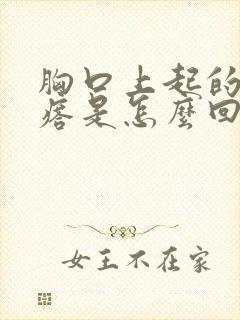 胸口上起的
痞是怎麼回
女王不在家